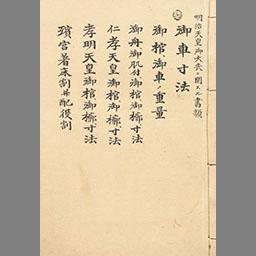 明治天皇御大喪ニ関スル書類
御車寸法
御棺御車ノ重量
御舟御肌付御棺御槨寸法
仁孝天皇御棺御槨寸法
孝明天皇御棺御槨寸法
殯宮著床割並配役割